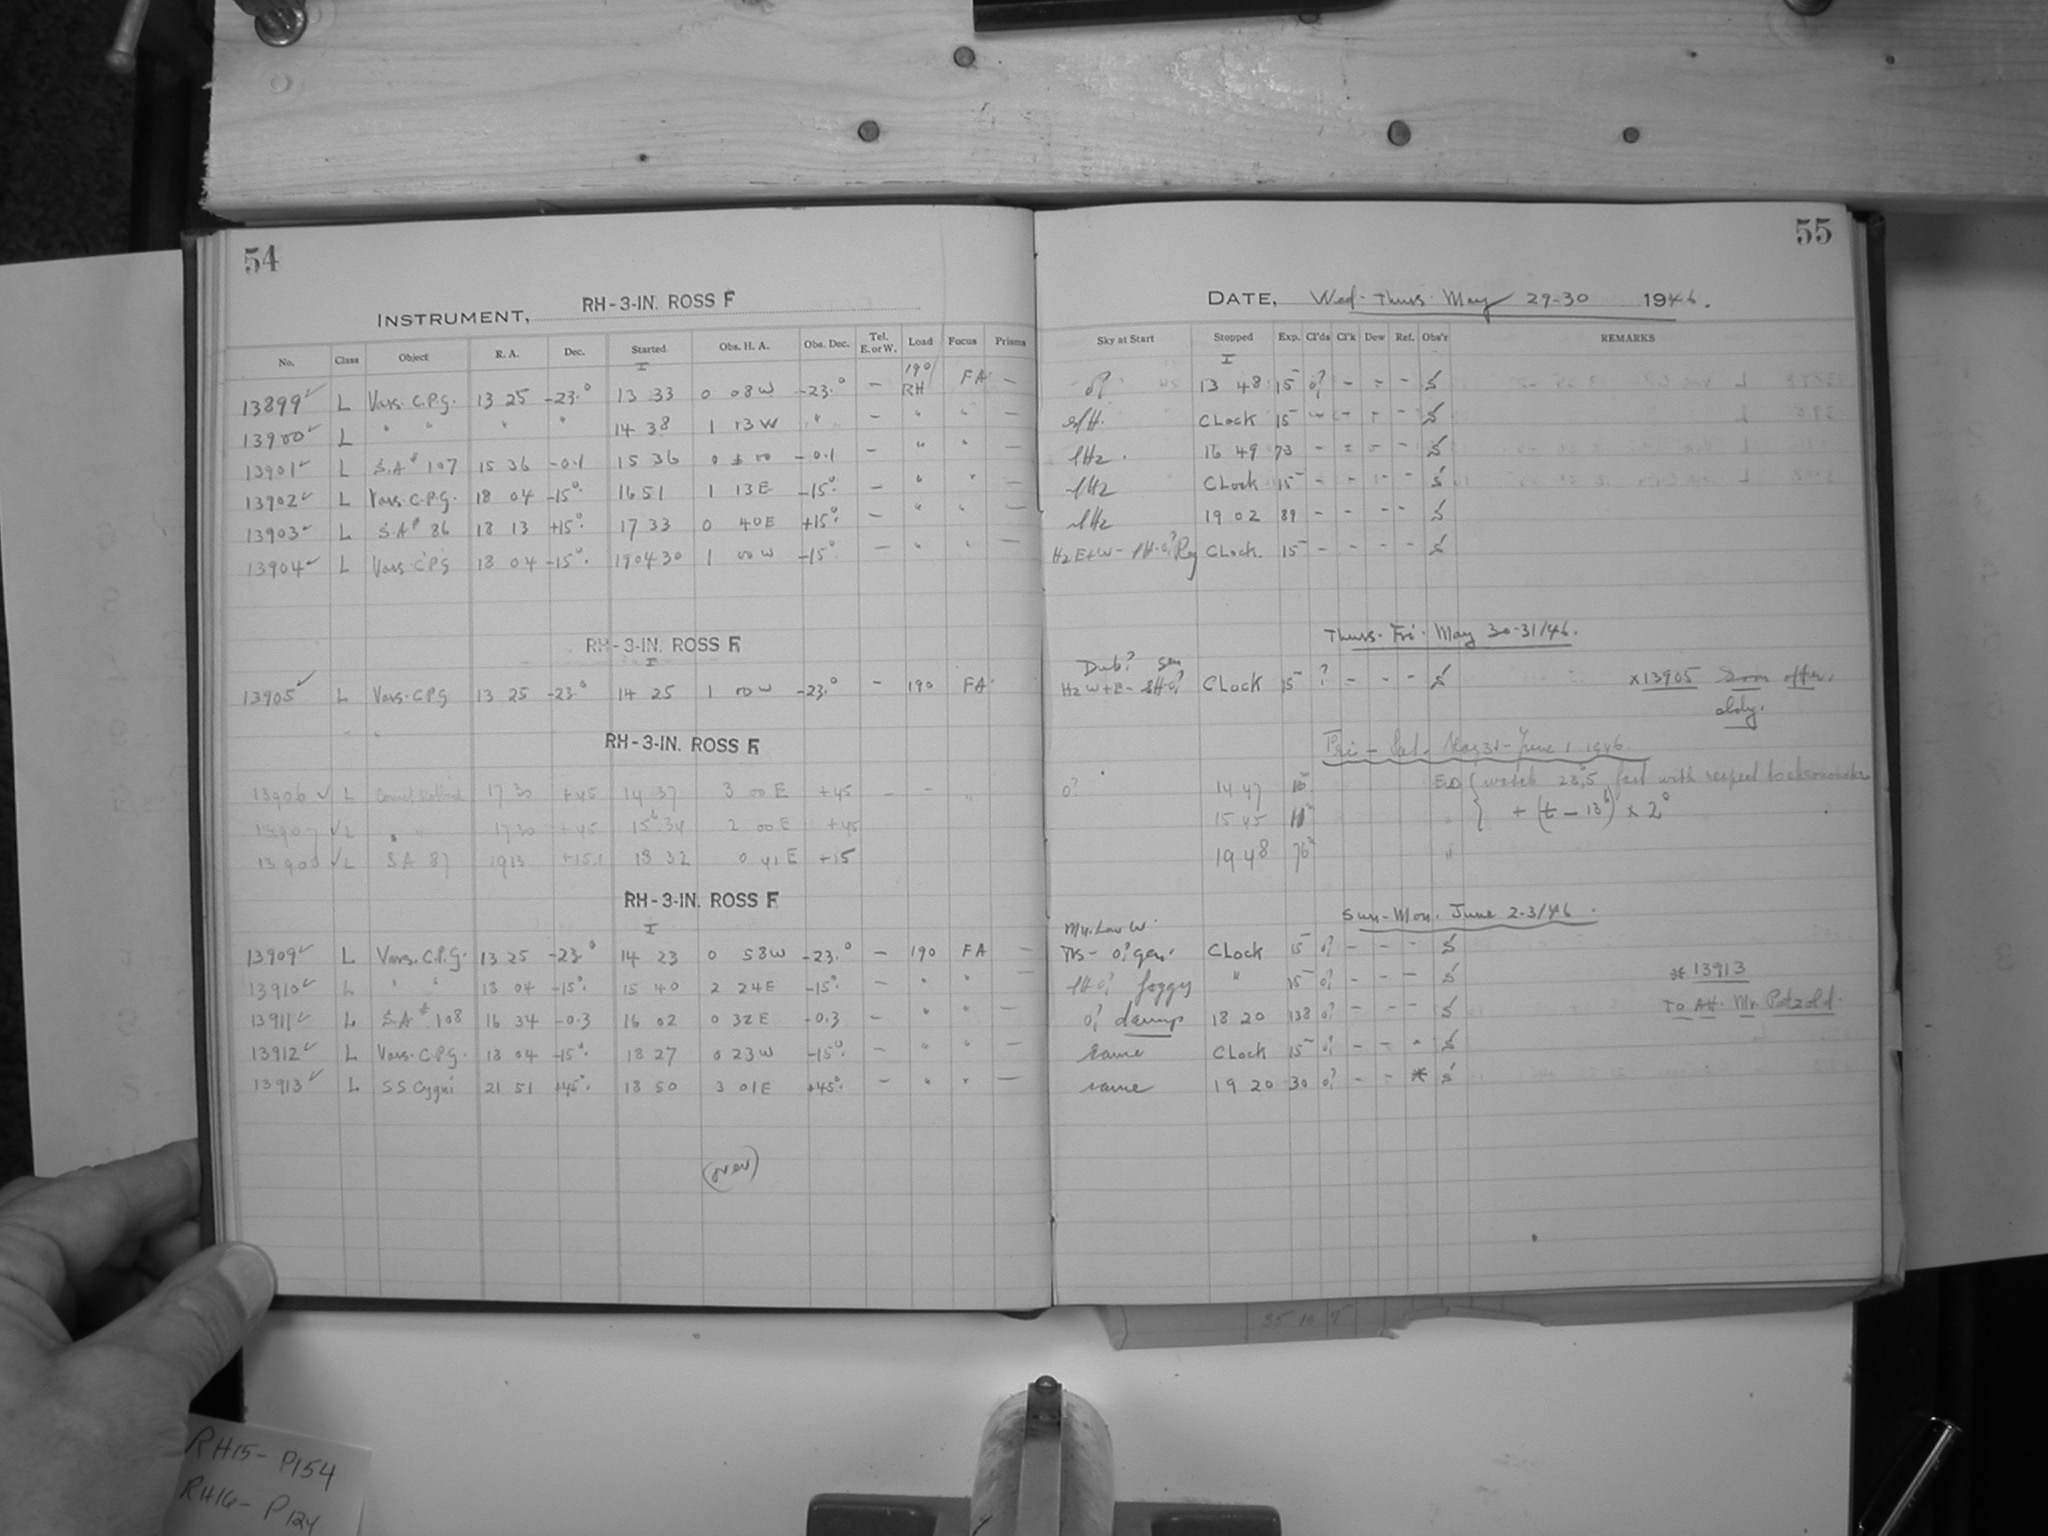 54
INSTRUMENT, RH-3-IN. ROSS F
No. Class Object R. A. Dec. Started Obs. H. A. Obs. Dec. Tel. E. or W. Load Focus Prisms
I
13899 ✓ L Vars. C.P.G. 13 25 -23.° 13 33 0 08W -23.° - 190/RH FA -
13900 ✓ L " " " " 14 38 1 13W " - " " -
13901 ✓ L S.A# 107 15 36 -0.1 15 36 0 00 -0.1 - " " -
13902 ✓ L Vars. C.P.G. 18 04 -15°. 16 51 1 13E -15°. - " " -
13903 ✓ L S.A# 86 18 13 +15°. 17 33 0 40E +15°. - " " -
13904 ✓ L Vars. C.P.G 18 04 -15°. 19 04 30 1 00W -15°. - " " -
RH-3-IN. ROSS F
I
13905 ✓ L Vars. C.P.G 13 25 -23.° 14 25 1 00W -23.° - 190 FA
RH-3-IN. ROSS F
13906 ✓ L 17 30 +45 14 37 3 00 E +45 - -
13907 ✓ L " " 17 30 +45 15 34 2 00 E +45
13908 ✓ L SA 87 1913 +15.1 18 32 0 41 E +15
RH-3-IN. ROSS F
I
13909 ✓ L Vars. C.P.G. 13 25 -23.° 14 23 0 58W -23.° - 190 FA -
13910 ✓ L " " 18 04 -15°. 15 40 2 24E -15°. - " " -
13911 ✓ L S.A# 108 16 34 -0.3 16 02 0 32E -0.3 - " " -
13912 ✓ L Vars. C.P.G. 18 04 -15°. 18 27 0 23W -15°. - " " -
13913 ✓ L SS Cygni 21 51 +45°. 18 50 3 01E +45°. - " " -
(over)
55
DATE, Wed-Thurs. May 29-30 1946.
Sky at Start Stopped Exp. Cl'ds Cl'k Dew Ref. Obs'r REMARKS
I
o? 13 48 15 o? - - -
slH. CLock 15 - - -
lHz. 16 49 73 - - - -
lHz CLock 15 - - - -
lHz 19 02 89 - - - -
Hz E+W - lH-o? CLock. 15 - - - -
Thurs-Fri. May 30-31/46.
Hz W+E - CLock 15 ? - - - x13905
Fri - Sat. May 31 - June 1 1946.
o? 14 47 10 watch 28.5 fast with respect to chronometer
15 45 11 + (t - 13h) x 2
19 48 76 "
Sun-Mon. June 2-3/46.
o? gen. CLock 15 o? - - -
lH o? foggy " 15 o? - - -
* 13913
o? damp 18 20 138 o? - - -
To Att. Mr. Petzold.
same CLock 15 o? - - -
same 19 20 30 o? - - *
35 10
RH15- P154
RH16- P124